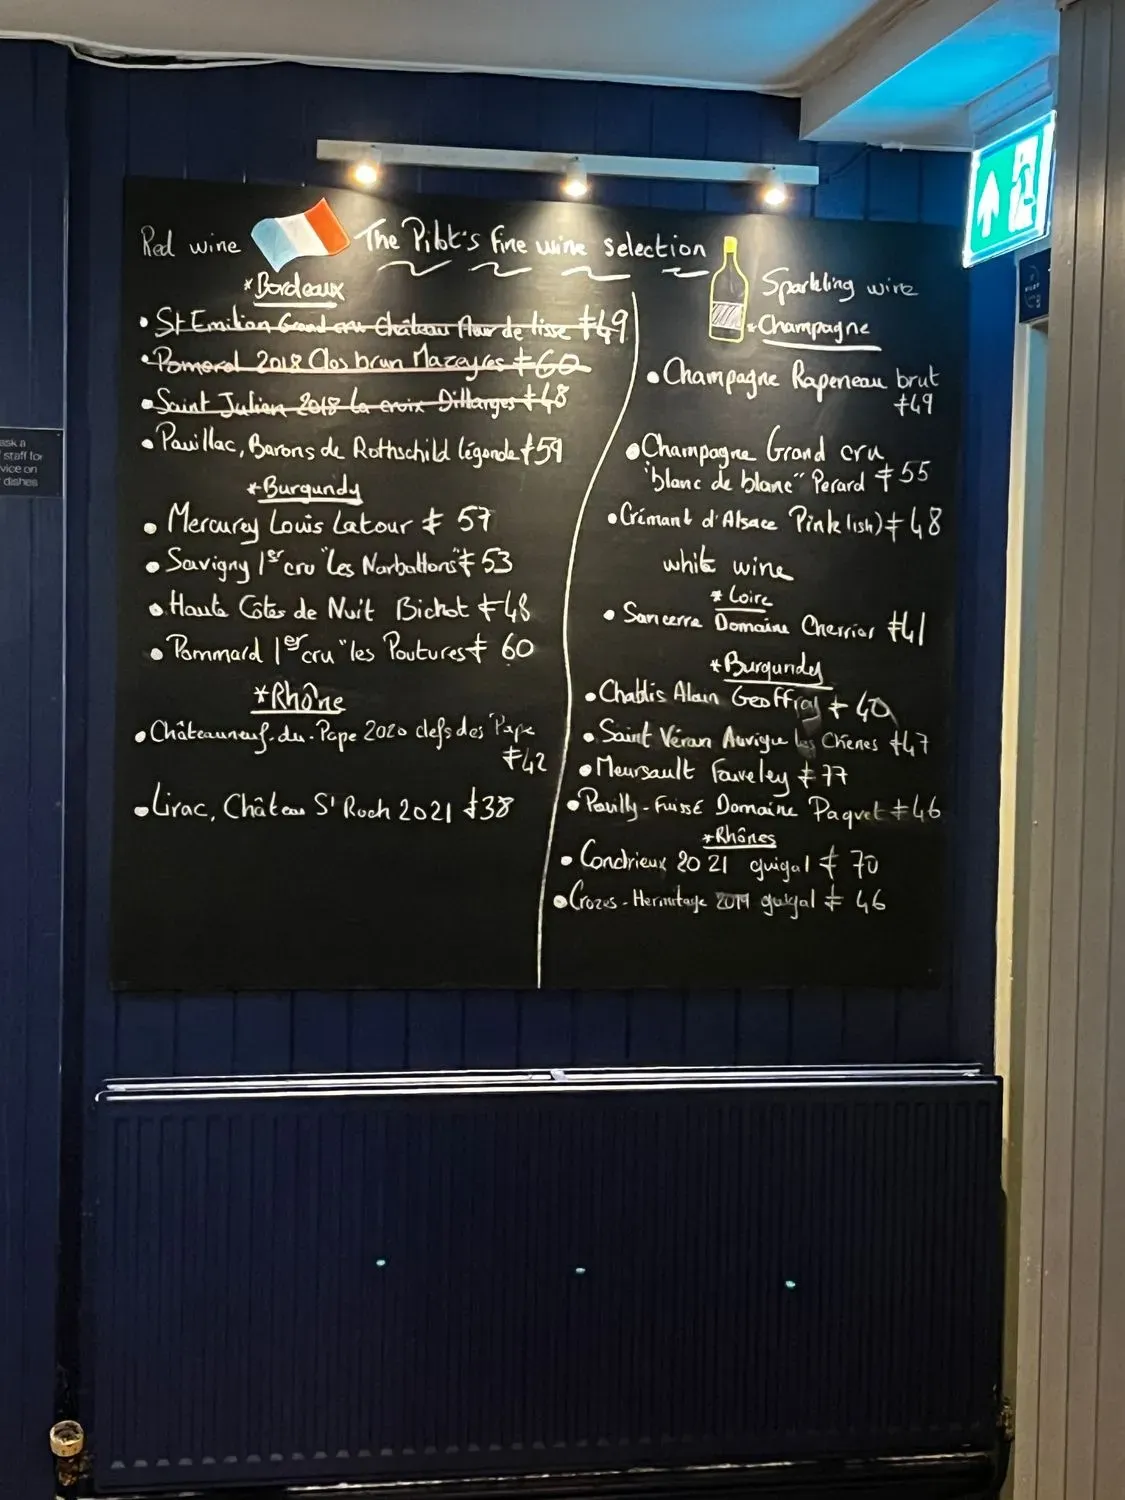 Red wine
The Pilot's fine wine selection
*Bordeaux
• St Emilion Grand cru Château fleur de lisse £49
• Pomerol 2018 Clos brun Mazeyres £60
• Saint Julien 2018 la croix £48
• Pauillac, Barons de Rothschild légende £59
*Burgundy
• Mercurey Louis Latour £ 57
• Savigny 1er cru "les Narbattons" £ 53
• Haute Côtes de Nuit Bichot £48
• Pommard 1er cru "les Poutures £ 60
*Rhône
• Châteauneuf-du-Pape 2020 clefs des Pape
£42
• Lirac, Château St Roch 2021 £38
Sparkling wine
*Champagne
• Champagne Rapeneau brut
£49
• Champagne Grand cru
"blanc de blanc" Perard £55
• Crémant d'Alsace Pink (ish) £48
white wine
*Loire
• Sancerre Domaine Cherrier £41
*Burgundy
• Chablis Alain Geoffroy £ 40
• Saint Véran Auvigue les Chênes £47
• Meursault Faiveley £77
• Pouilly-Fuissé Domaine Paquet £46
*Rhônes
• Condrieux 2021 guigal £ 70
• Crozes-Hermitage 2019 guigal £ 46
ask a
staff for
vice on
dishes